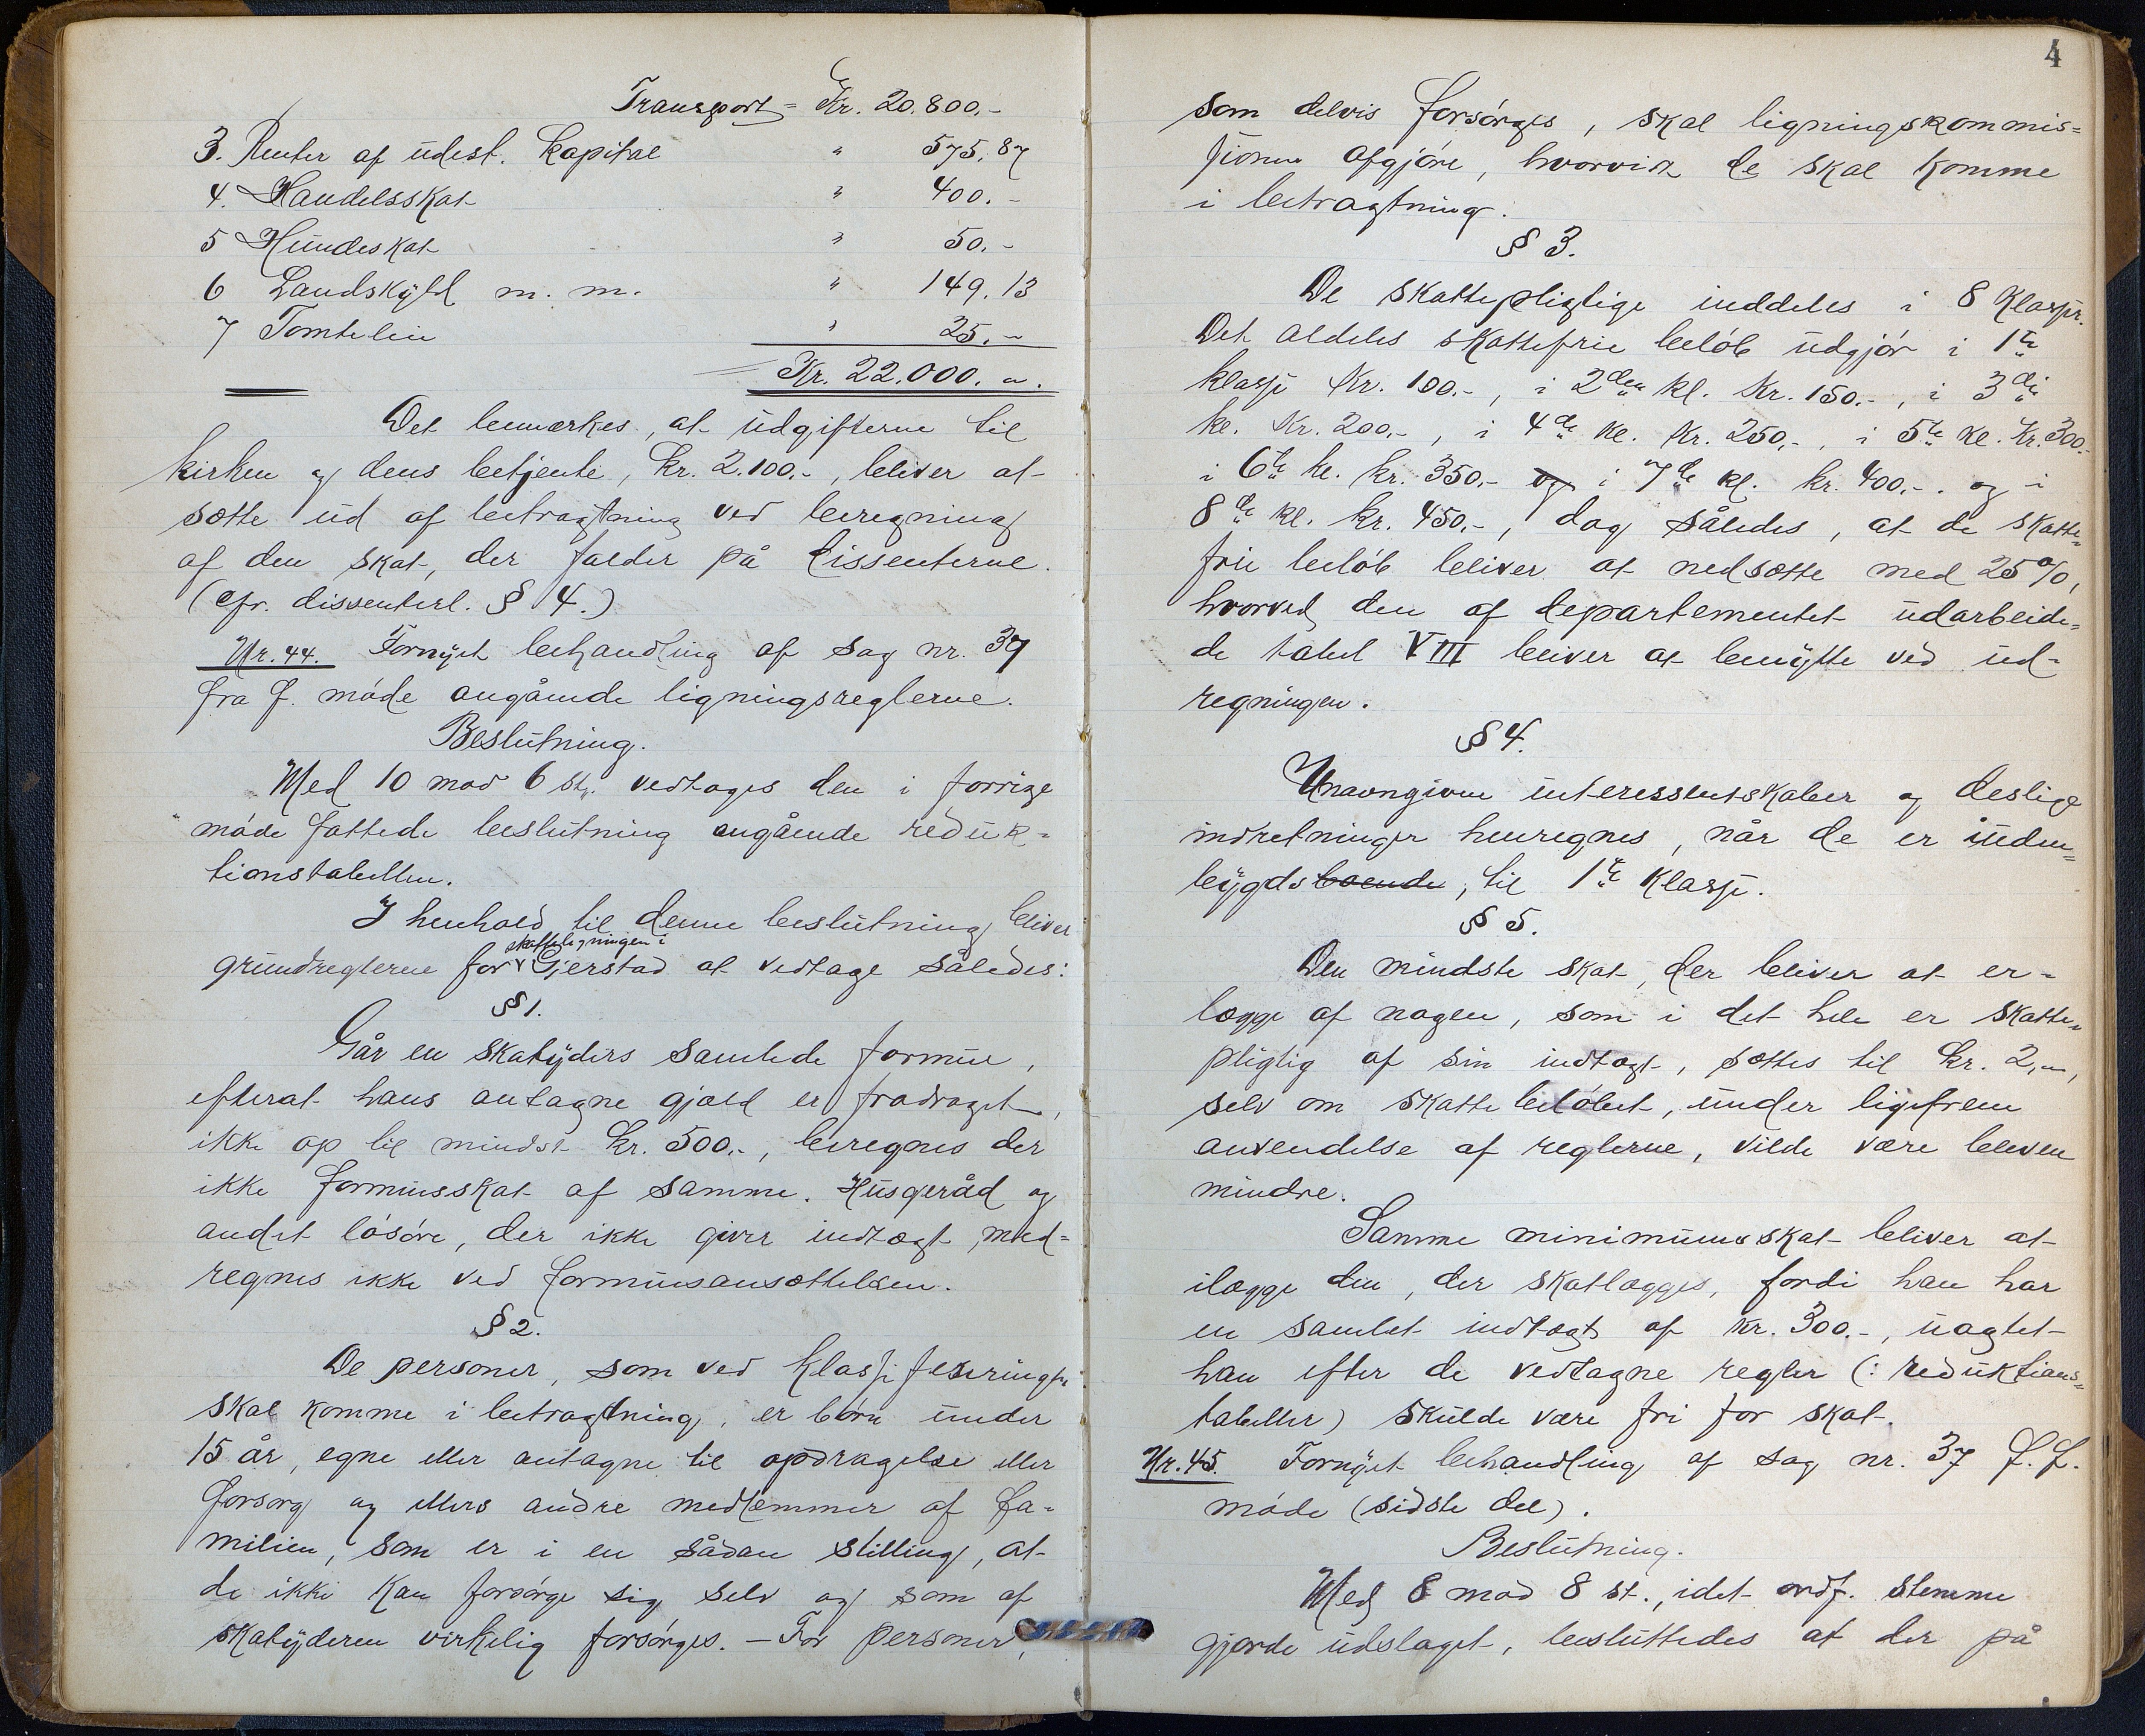 Transport = Kr. 20.800.-
3. Renter af udest. kapital " 575,87
4. Handelsskat " 400.-
5 Hundeskat " 50.-
6 Landskyld m. m. " 149.13
7 Tomteleie " 25.-
Kr. 22.000. -.
Det bemærkes, at udgifterne til
kirken og dens betjente, kr. 2.100.-, bliver at
sætte ud af betragtning ved beregning
af den skat, der falder på dissenterne.
(cfr. dissenterl. § 4.)
Nr. 44. Fornyet behandling af sag nr. 37
fra f. møde angående ligningsreglerne.
Beslutning.
Med 10 mod 6 st. vedtages den i forrige
møde fattede beslutning angående reduk-
tionstabellen.
I henhold til denne beslutning bliver
skatteligningen i
grundreglerne for Gjerstad at vedtage således:
§ 1.
Går en skatyders samlede formue,
efterat hans antagne gjæld er fradraget,
ikke op til mindst kr. 500.-, beregnes der
ikke formuesskat af samme. Husgeråd og
andet løsøre, der ikke giver indtægt, med-
regnes ikke ved formuesansættelsen.
§ 2.
De personer, som ved klassifiseringen
skal komme i betragtning, er børn under
15 år, egne eller antagne til opdragelse eller
forsorg og ellers andre medlemmer af fa-
milien, som er i en sådan stilling, at
de ikke kan forsørge sig selv og som af
skatyderen virkelig forsørges. - For personer,
4
som delvis forsørges, skal ligningskommis=
sionen afgjøre, hvorvidt de skal komme
i betragtning.
§ 3.
De skattepligtige inddeles i 8 klasser.
Det aldeles skattefrie beløb udgjør i 1te
klasse Kr. 100.-, i 2den kl. Kr. 150.-, i 3die
kl. Kr. 200.-, i 4de kl. Kr. 250.-, i 5te kl. Kr. 300.-
i 6te kl. kr. 350.- og i 7de kl. kr. 400.-. og i
8de kl. kr. 450.-, dog således, at de skatte=
frie beløb bliver at nedsætte med 25 %,
hvorved den af departementet udarbeide=
de tabel VIII bliver at benytte ved ud-
regningen.
§ 4.
Unavngivne interessentskaber og deslige
indretninger henregnes, når de er inden=
bygdsboende, til 1te klasse.
§ 5.
Den mindste skat, der bliver at er-
lægge af nogen, som i det hele er skatte=
pligtig af sin indtægt, sættes til kr. 2,-,
selv om skattebeløbet, under ligefrem
anvendelse af reglerne, vilde være bleven
mindre.
Samme minimumsskat bliver at
ilægge den, der skatlægges, fordi han har
en samlet indtægt af kr. 300.-, uagtet
han efter de vedtagne regler (: reduktions=
tabeller) skulde være fri for skat.
Nr. 45. Fornyet behandling af sag nr. 37 f. f.
møde (sidste del).
Beslutning.
Med 8 mod 8 st., idet ordf. stemme
gjorde udslaget, besluttedes at der på